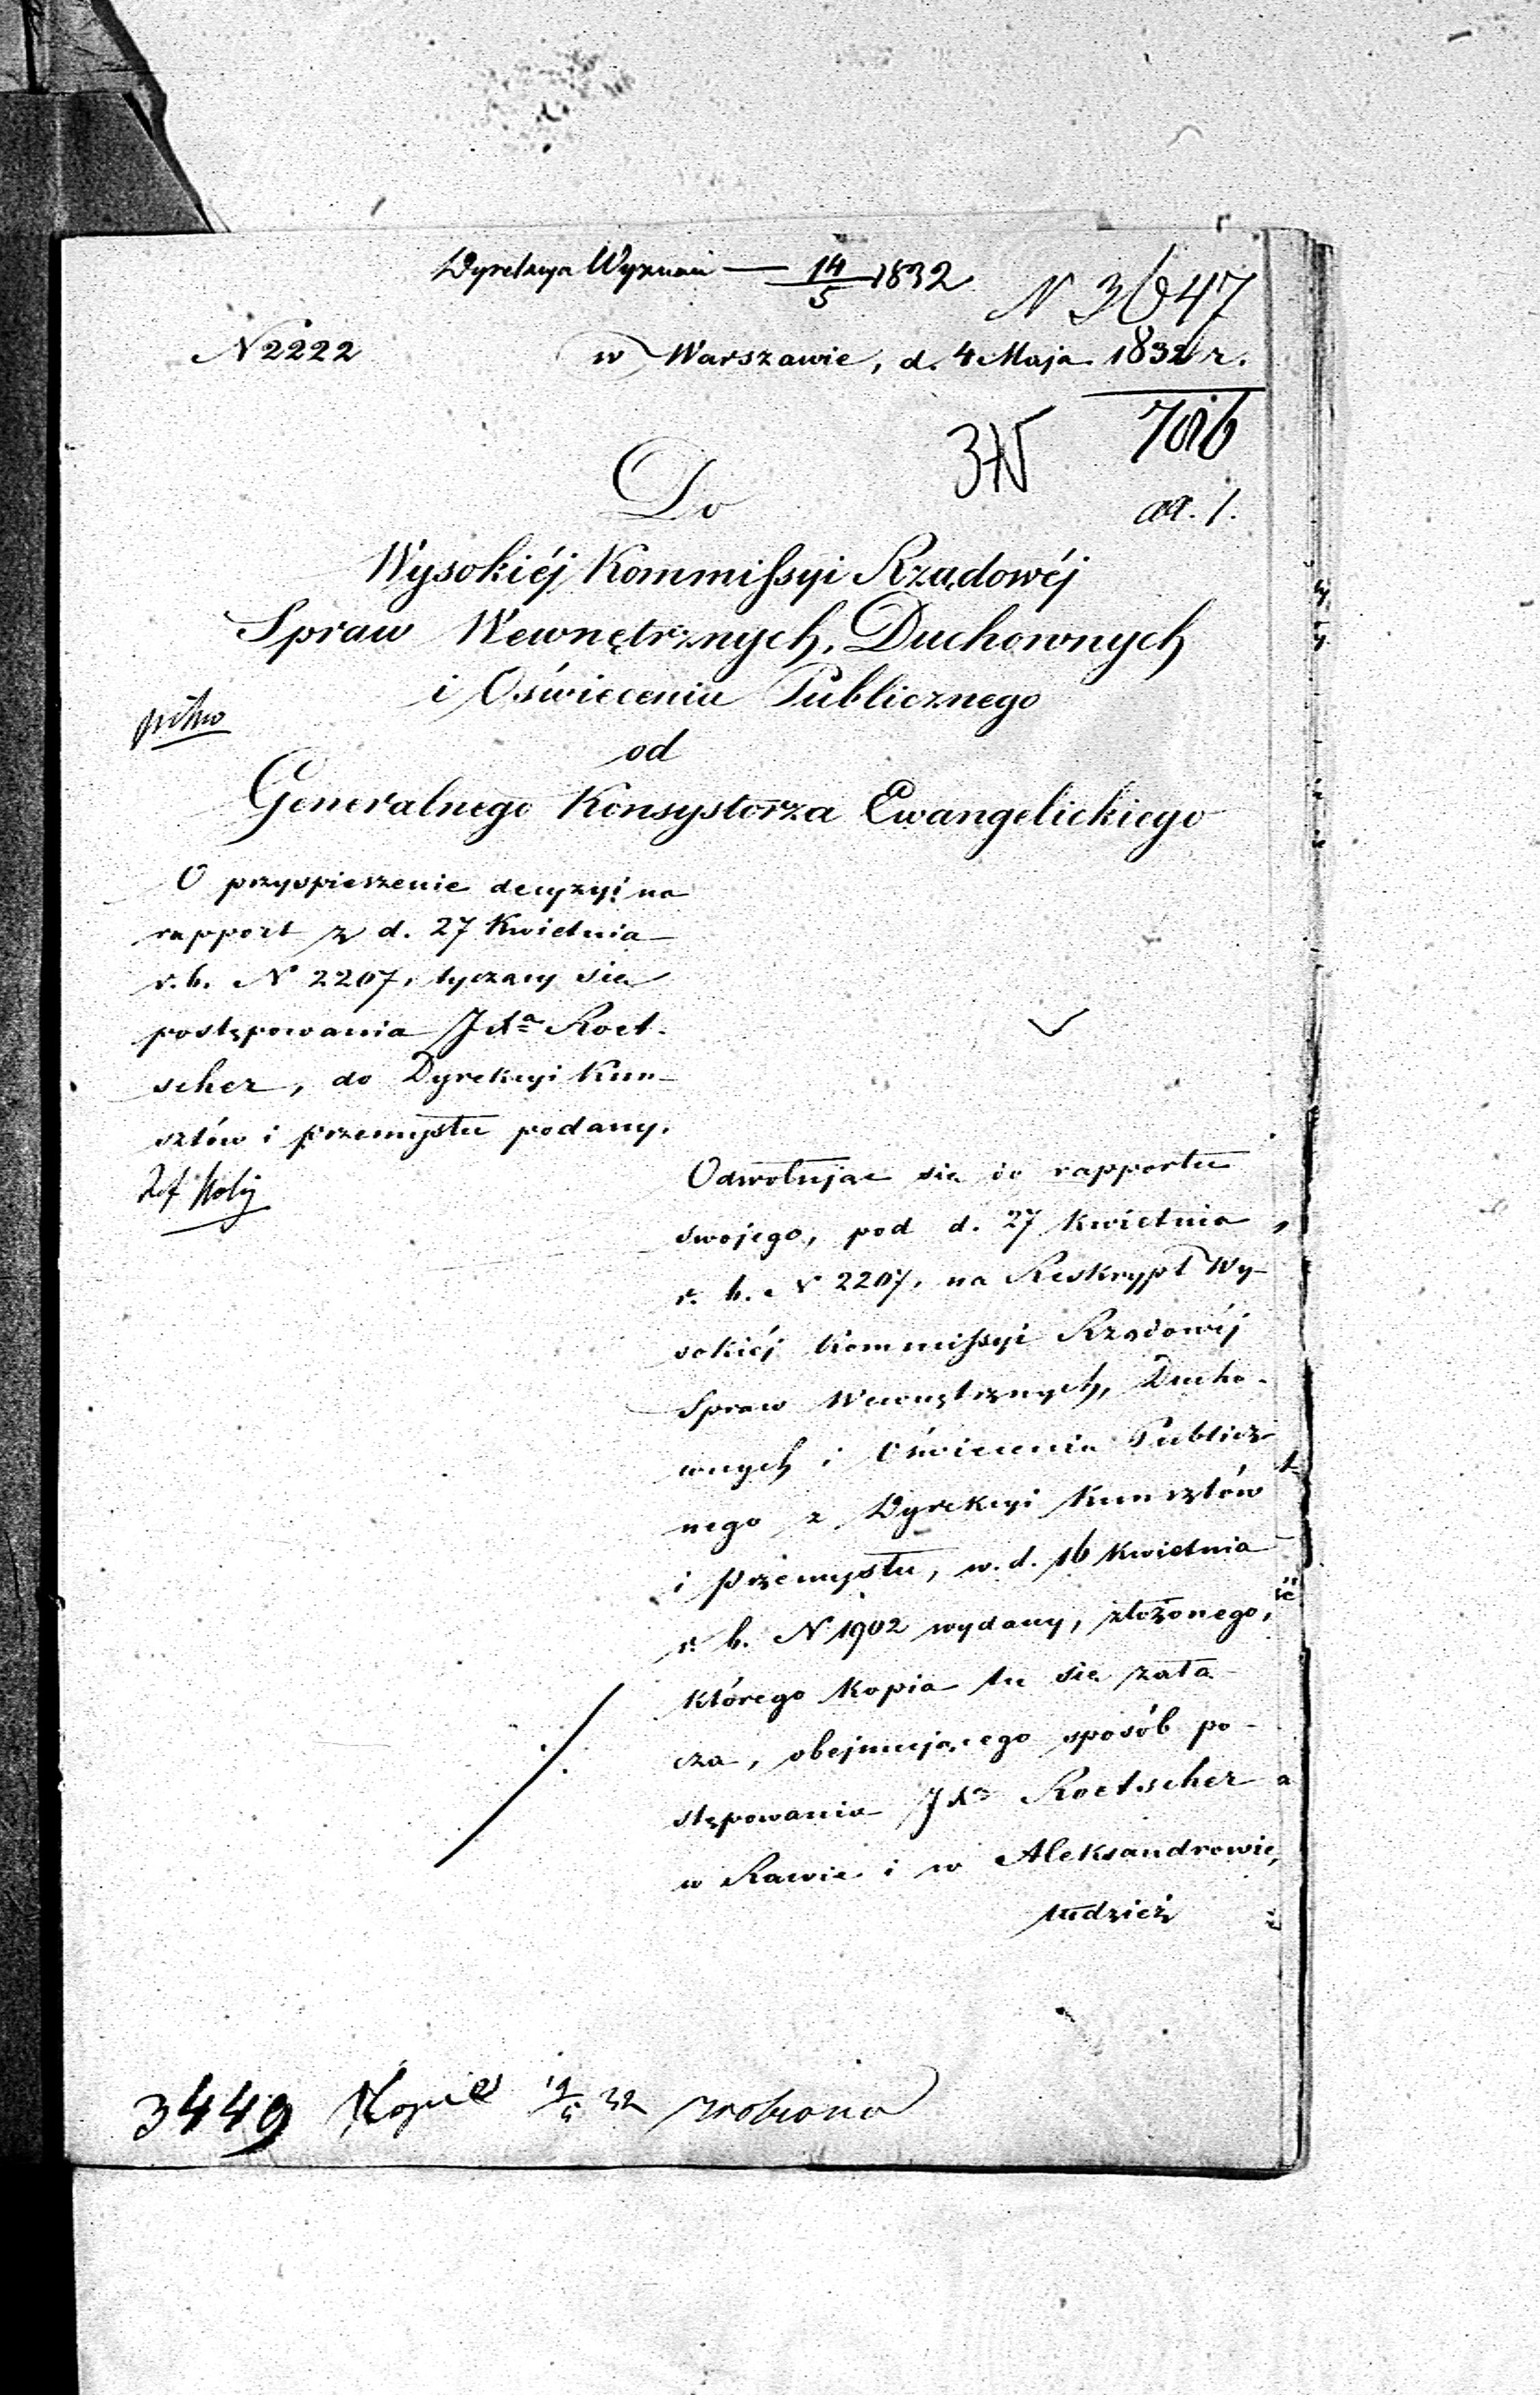 Dyrekcya Wyznań — 14/5 1832
N 3647
N 2222
w Warszawie, d. 4 Maja 1832 r.
Do
Wysokiéj Kommissyi Rządowéj
Spraw Wewnętrznych, Duchownych
i Oświecenia Publicznego
pilno
od
Generalnego Konsystorza Ewangelickiego
O przyspieszenie decyzyi na
rapport z d. 27 Kwietnia
r. b. N 2207, tyczący się
postępowania JXa Roet-
scher, do Dyrekcyi Kun-
sztów i przemysłu podany.
Odwołując się do rapportu
swojego, pod d. 27 Kwietnia
r. b. N 2207, na Reskrypt Wy-
sokiéj Kommissyi Rządowéj
Spraw Wewnętrznych, Ducho-
wnych i Oświecenia Publicz-
nego z Dyrekcyi Kunsztów
i Przemysłu, w d. 16 Kwietnia
r. b. N 1902 wydany, złożonego,
którego kopia tu się załą-
cza, obejmującego sposób po-
stępowania JXa Roetscher
w Rawie i w Aleksandrowie,
tudzież
3449 Kopia 19/5 32 zrobiona